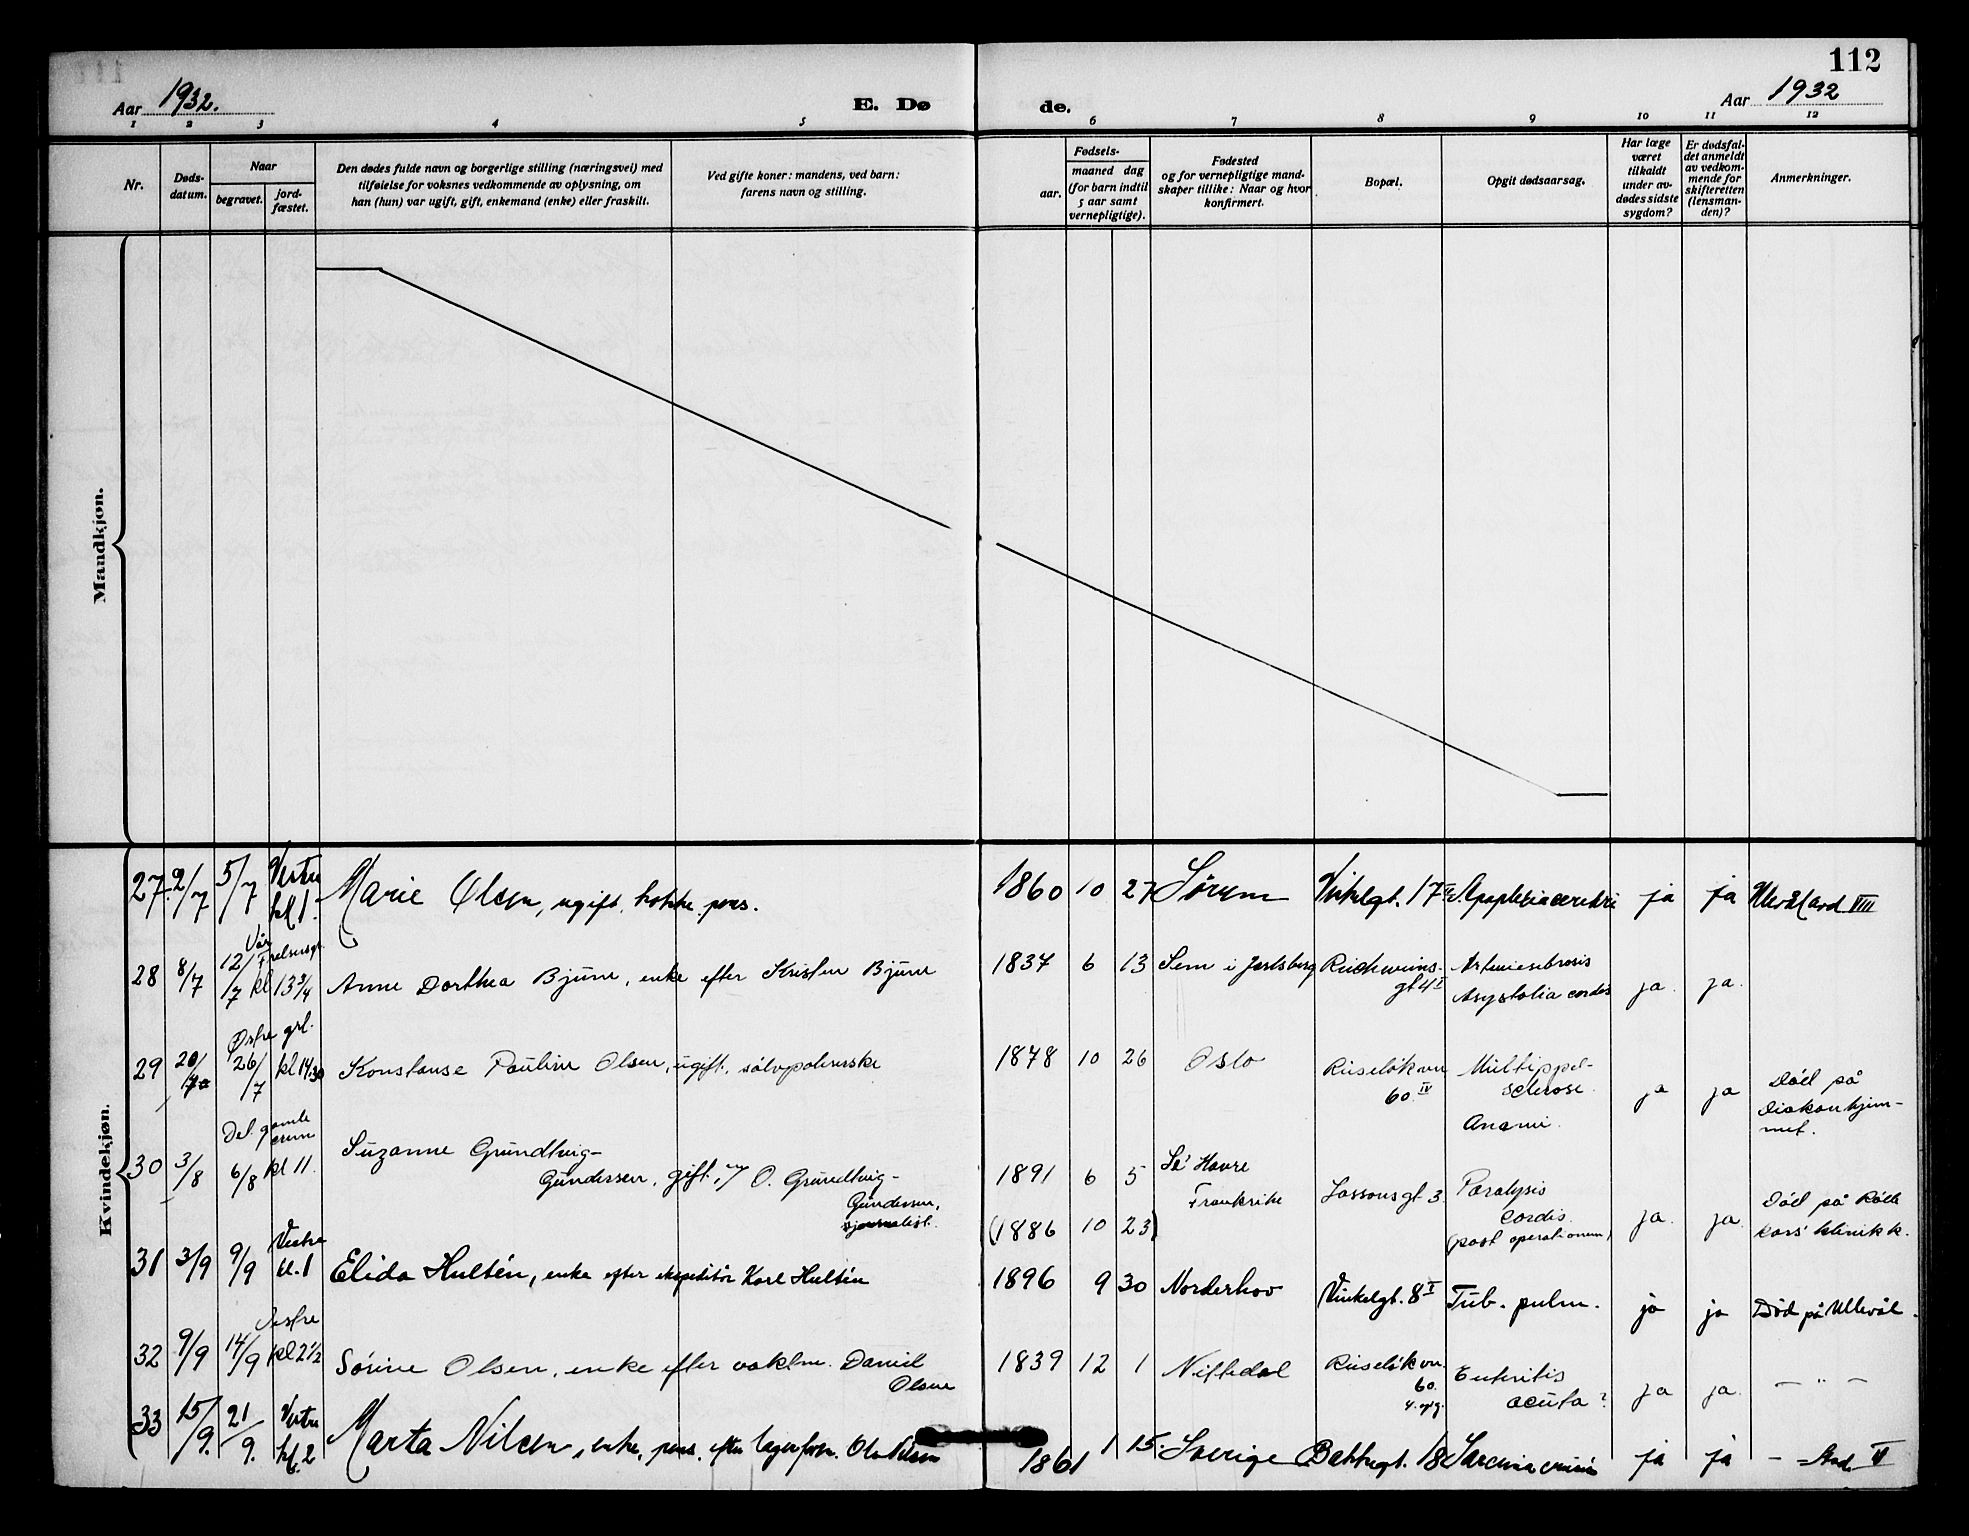 112
Aar 1932.
E. Dø
de.
Aar 1932
1 2 3 4 5 6 7 8 9 10 11 12
Nr.
Døds-
datum.
Naar
begravet.
jord-
fæstet.
Den dødes fulde navn og borgerlige stilling (næringsvei) med
tilføielse for voksnes vedkommende av oplysning, om
han (hun) var ugift, gift, enkemand (enke) eller fraskilt.
Ved gifte koner: mandens, ved barn:
farens navn og stilling.
Fødsels-
aar.
maaned dag
(for barn indtil
5 aar samt
vernepligtige).
Fødested
og for vernepligtige mand-
skaper tillike: Naar og hvor
konfirmert.
Bopæl.
Opgit dødsaarsag.
Har læge
været
tilkaldt
under av-
dødes sidste
sygdom?
Er dødsfal-
det anmeldt
av vedkom-
mende for
skifteretten
(lensman-
den)?
Anmerkninger.
Mandkjøn.
Kvindekjøn.
27. 2/7 5/7 Vestre kl 1. Marie Olsen, ugift, kokke, pens. 1860 10 27 Sørum Vinkelgt. 17 Apoplexia cerebri ja ja Ullevål avd VIII
28 8/7 12/7 Vår Frelsersgr. kl 13 3/4 Anne Dorthea Bjune, enke efter Kristen Bjune 1837 6 13 Sem i Jarlsberg Reichweins-
gt 4 I
Asystolia cordis ja. ja.
29 20/7 26/7 Østre grl. kl 14.30 Konstanse Pauline Olsen, ugift, sølvpolererske 1878 10 26 Oslo Ruseløkvn
60 IV
Multippel-
sclerose.
Anæmi.
ja ja
Død på
Diakonhjem-
met.
30 3/8 6/8 Det gamle
krem
kl 11. Suzanne Grundtvig-
Gundersen, gift m/ O. Grundtvig-
Gundersen,
journalist.
1891 6 5 Le Havre
Frankrike
(1886 10 23)
Lassons gt 3 Paralysis
cordis
(post operationem)
ja. ja.
Død på Røde
kors' klinikk.
31 3/9 9/9 Vestre
kl. 1 Elida Hultén, enke efter ekspeditør Karl Hultén 1896 9 30 Norderhov Vinkelgt. 8 I Tub. pulm. ja ja Død på Ullevål.
32 9/9 14/9 Vestre
kl 2 1/2 Sørine Olsen, enke efter vaktm. Daniel
Olsen
1839 12 1 Nittedal Ruseløkvn.
60.
4. opg.
Enteritis
acuta?
ja ja. — " —
33 15/9. 21/9. Vestre
kl. 2 Marta Nilsen, enke, pens. efter lagerform. Ole Nilsen 1861 1 15. Sverige Bakkegt. 18 ja ja — Avd. V